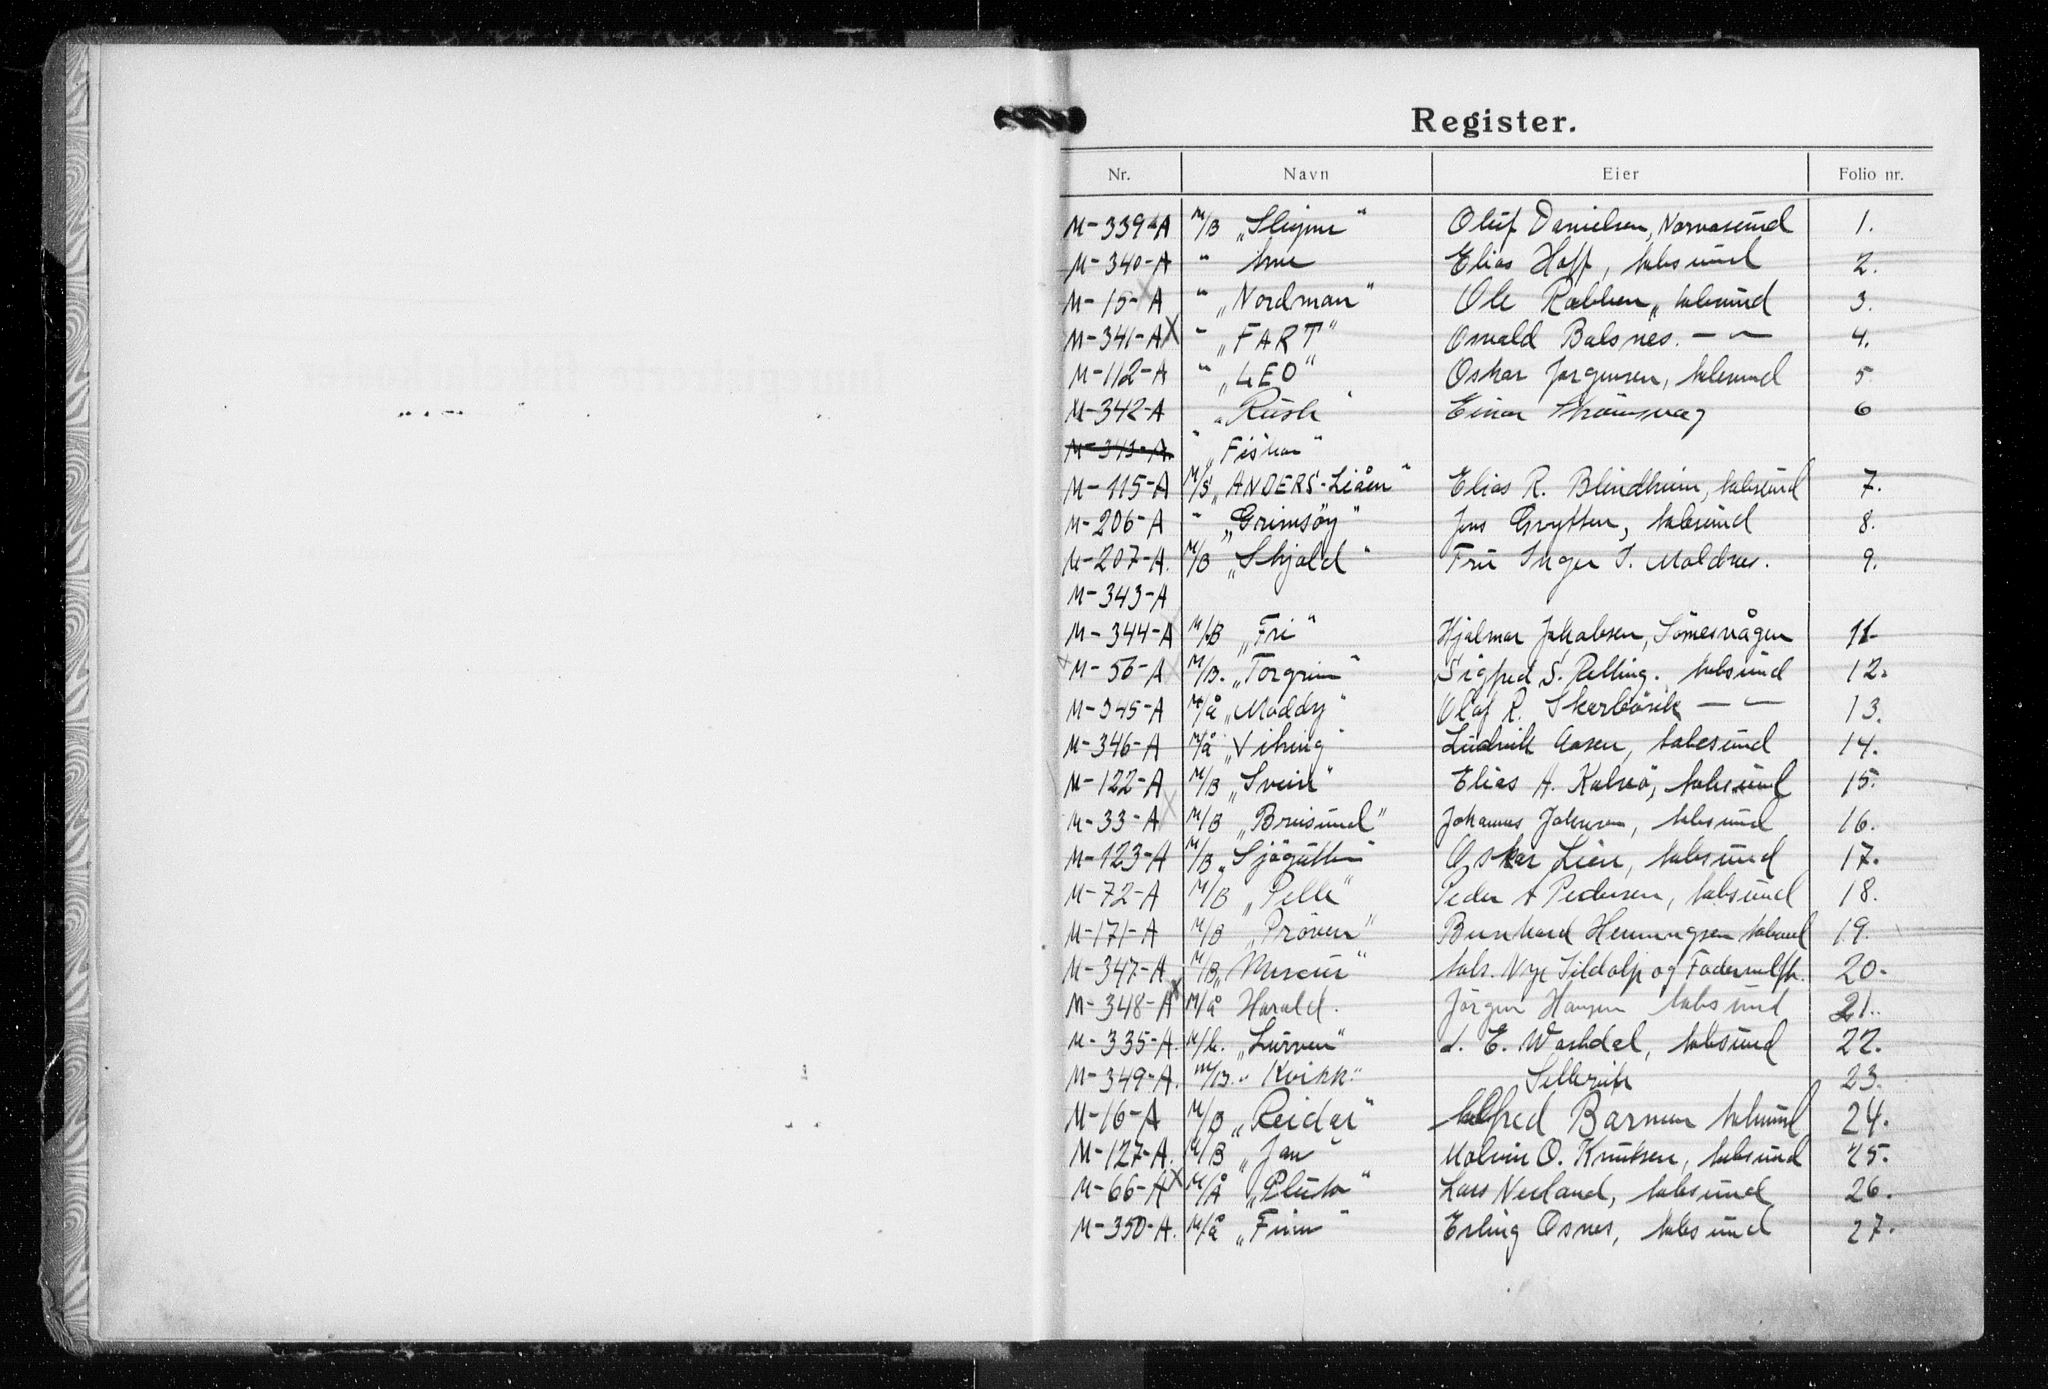 Register.
Nr. Navn Eier Folio nr.
M-339-A M/B „Sleipner" Oluf Danielsen, Nørvasund 1.
M-340-A " Elias Hoff, Aalesund 2.
M-15-A " „Nordman" Ole Rabben, Aalesund 3.
M-341-A X " „FART" Osvald Balsnes. — " — 4.
M-112-A " „LEO" Oskar Jørgensen, Aalesund 5
M-342-A „Rusk" Einar Strømsvåg 6
M-343-A. " „Fisker"
M-115-A M/S „ANDERS-Liåen" Elias R. Blindheim, Aalesund 7.
M-206-A " „Grimsøy" Jens Grytten, Aalesund 8.
M-207-A. M/B „Skjold" Fru Inger I. Moldnes. 9.
M-343-A
M-344-A M/B „Fri" Hjalmar Jakobsen, Sömesvågen 11-
M-56-A M/B. „Torgrim" Sigfred S. Relling. Aalesund 12.
M-345-A M/å „Moddy" Olaf R. — " — 13.
M-346-A M/å „Viking" Ludvik Aasen, Aalesund 14.
M-122-A M/B „Svein" Elias A. Kalvø, Aalesund 15.
M-33-A M/B „Breisund" Johannes Aalesund 16.
M-123-A M/B „Sjøgutten" Oskar Lien, Aalesund 17.
M-72-A M/B „Pelle" Peder A Pedersen, Aalesund 18.
M-171-A M/B „Prøven" Bernhard Henningsen Aalesund 19.
M-347-A M/B „Mercur" Aales. Nye Sildolje og 20.
M-348-A X M/å Harald. Jørgen Hansen Aalesund 21.
M-335-A. M/b. „Lurven" E. Aalesund 22.
M-349-A. M/B. „Kvikk" 23.
M-16-A M/B „Reidar" Alfred Barmen Aalesund 24.
M-127-A. M/B „Jan" Malvin O. Knutsen, Aalesund 25.
M-66-A X M/Å „Pluto" Lars Nerland, Aalesund 26.
M-350-A. M/å „Finn" Erling Osnes, Aalesund 27.